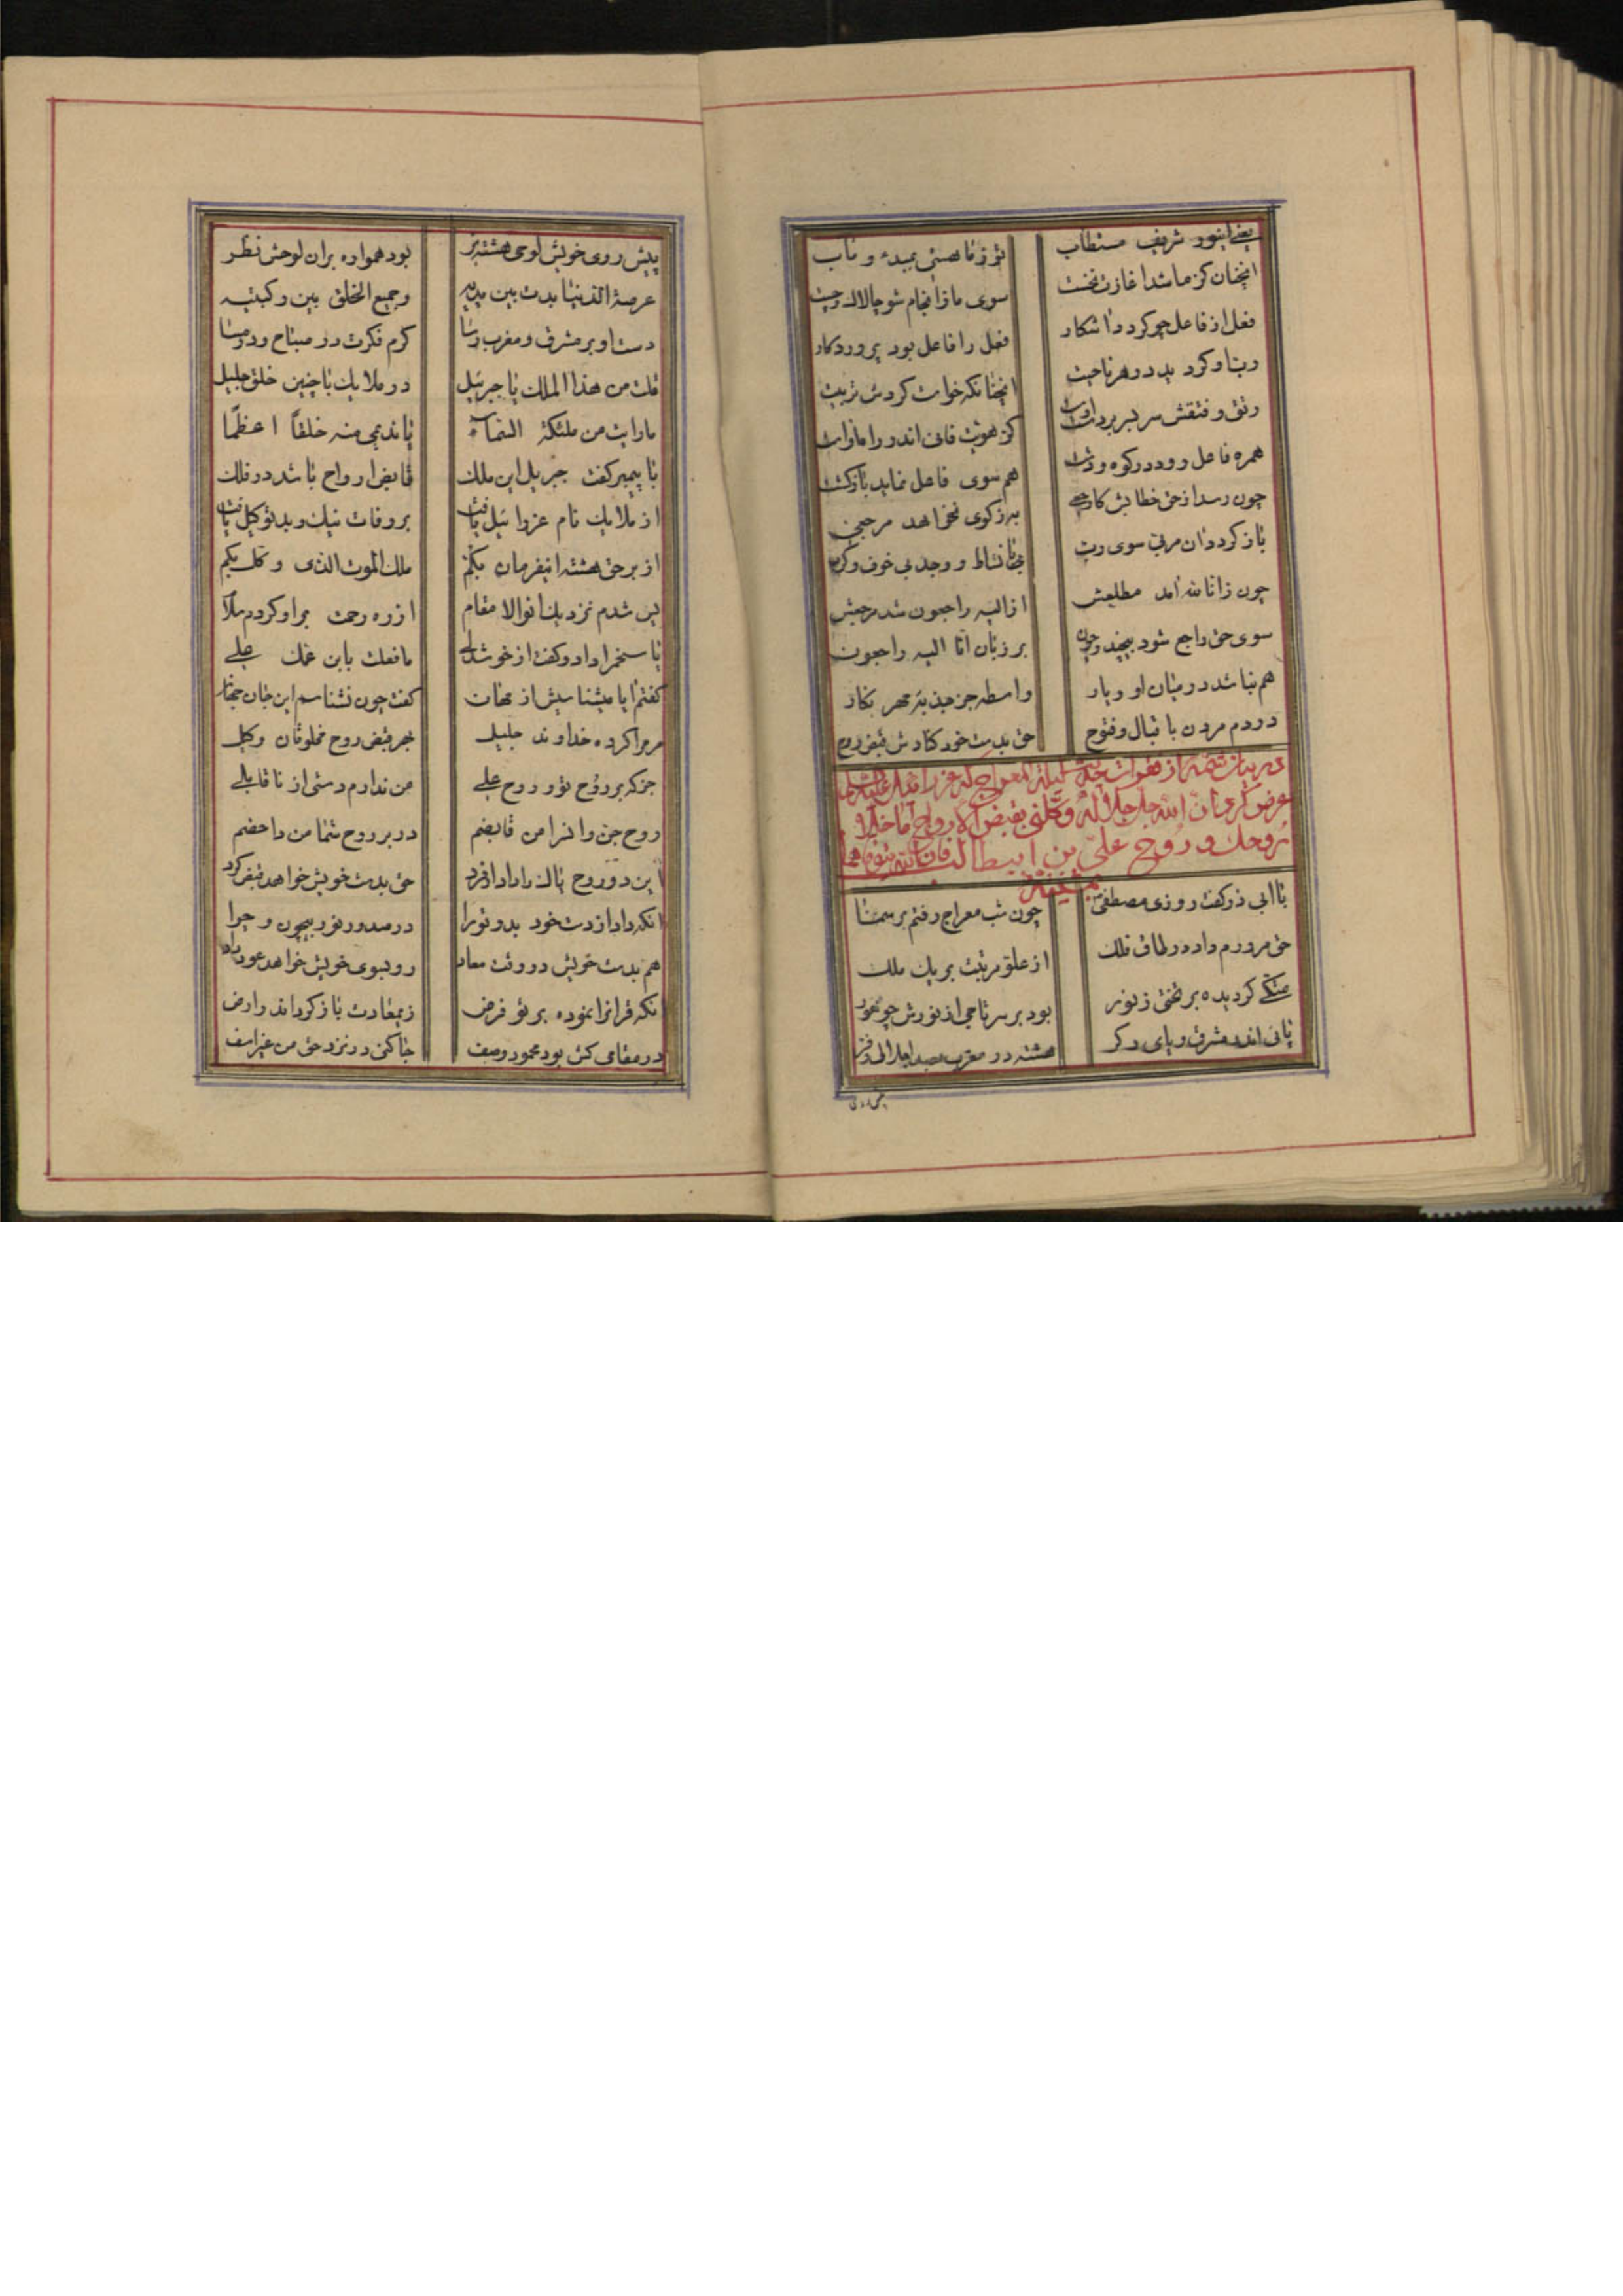 یعنی اینور شریف مستطاب
تو ز ما هستی بمبدء و ماب
انچنان کز ما شد اغازت نخست
سوی ما زانجام شو چالاک و چست
فعل از فاعل چو کردد اشکار
فعل را فاعل بود پروردکار
انچنانکه خواست کردش تربیت
رتق و فتقش سر بسر بر داور است
همره فاعل رود در کوه و دشت
هم سوی فاعل نماید بازکشت
چون رسد از حق خطابش کارجعی
به ز کوی نخواهد مرجعی
باز کردد ان مربی سوی رب
با نشاط و وجد بی خوف و کرب
چون ز انا لله امد مطلعش
از الیه راجعون شد مرجعش
سوی حق راجع شود بیچند و چون
بر زبان انا الیه راجعون
هم نباشد در میان او و یار
واسطه جز جذبهٔ مهر نکار
در دم مردن با قبال و فتوح
حق بدست خود کندش قبض روح
در بیان لیلة المعراج که
عرض کرد ان الله جل جلاله وکلنی بقبض الارواح ما خلا
روحک و روح علی بن ابیطالب فان الله یتوفاهما
بمشیته
با ابی ذر کفت روزی مصطفی
چون شب معراج رفتم بر سما
حق مرورم داد در طاق فلک
از علو مرتبت بر یک ملک
متکی کردیده بر تختی ز نور
بود بر سر تاجی از نورش چو هور
پائی اندر مشرق و پای دکر
هشته در مغرب
پیش روی خویش لوحی هشته بر
بود همواره بران لوحش نظر
عرصة الدنیا بدت بین یدیه
و جمیع الخلق بین رکبتیه
دست او بر مشرق و مغرب رسا
کرم فکرت در صباح و در مسا
قلت من هذا الملک یا جبرئیل
در ملایک با چنین خلق جلیل
ما رایت من ملئکة السماء
یا ندیمی منه خلقاً اعظما
با پیمبر کفت جبریل این ملک
قابض ارواح باشد در فلک
از ملایک نام عزرائیل یافت
بر وفات نیک و بد توکیل یافت
از بر حق هشته اینفرمان بکم
ملک الموت الذی وکل بکم
پس شدم نزدیک انوالا مقام
از ره رحمت بر او کردم سلام
پاسخم را داد و کفت از خوشدلی
ما فعلت یابن عمک علی
کفتم ایا میشناسیش از مهان
کفت چون نشناسم این جان جهان
مر مرا کرده خداوند جلیل
بهر قبض روح مخلوقان وکیل
جز که بر روح تو و روح علی
من ندارم دستی از ناقابلی
روح جن و انس را من قابضم
در بر روح شما من داحضم
این دو روح پاک را دادار فرد
حق بدست خویش خواهد قبض کرد
انکه داد از دست خود بدو تو را
در صدور نور بیچون و چرا
هم بدست خویش در وقت معاد
رو بسوی خویش خواهد عود داد
انکه قرانرا نموده بر تو فرض
زی معادت باز کرداند ز ارض
در مقامی کش بود محمود وصف
جا کنی در نزد حق من غیر اسف
پیش روی